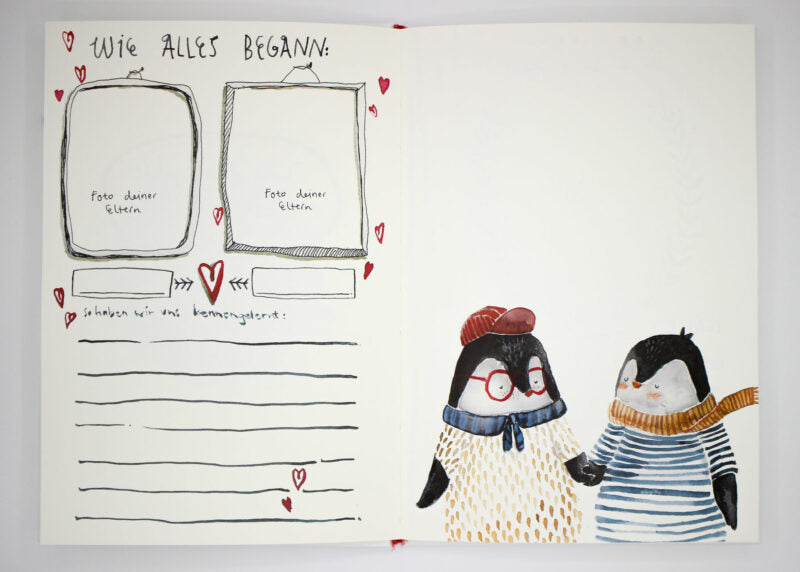 WIE ALLES BEGANN:
Foto deiner
Eltern
Foto deiner
Eltern
so haben wir uns kennengelernt: